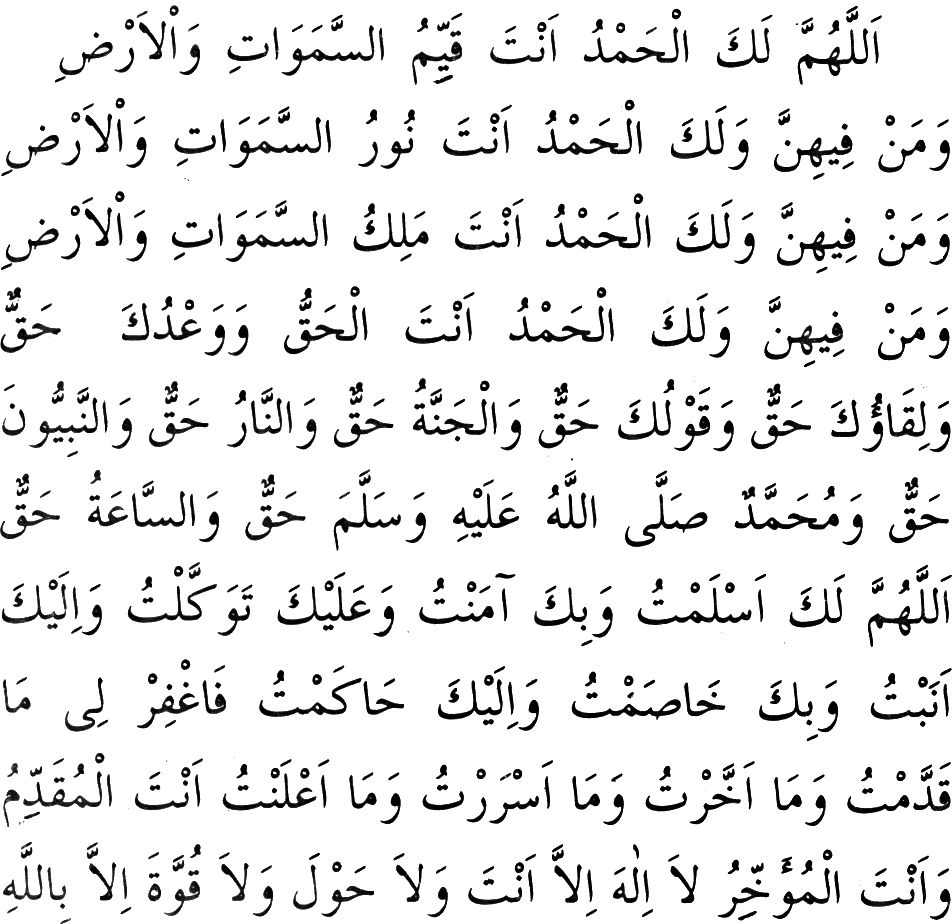 اَللَّهُمَّ لَكَ الْحَمْدُ اَنْتَ قَيِّمُ السَّمَوَاتِ وَاْلاَرْضِ
وَمَنْ فِيهِنَّ وَلَكَ الْحَمْدُ اَنْتَ نُورُ السَّمَوَاتِ وَاْلاَرْضِ
وَمَنْ فِيهِنَّ وَلَكَ الْحَمْدُ اَنْتَ مَلِكُ السَّمَوَاتِ وَاْلاَرْضِ
وَمَنْ فِيهِنَّ وَلَكَ الْحَمْدُ اَنْتَ الْحَقُّ وَوَعْدُكَ حَقٌّ
وَلِقَاؤُكَ حَقٌّ وَقَوْلُكَ حَقٌّ وَالْجَنَّةُ حَقٌّ وَالنَّارُ حَقٌّ وَالنَّبِيُّونَ
حَقٌّ وَمُحَمَّدٌ صَلَّى اللَّهُ عَلَيْهِ وَسَلَّمَ حَقٌّ وَالسَّاعَةُ حَقٌّ
اَللَّهُمَّ لَكَ اَسْلَمْتُ وَبِكَ آمَنْتُ وَعَلَيْكَ تَوَكَّلْتُ وَاِلَيْكَ
اَنَبْتُ وَبِكَ خَاصَمْتُ وَاِلَيْكَ حَاكَمْتُ فَاغْفِرْ لِى مَا
قَدَّمْتُ وَمَا اَخَّرْتُ وَمَا اَسْرَرْتُ وَمَا اَعْلَنْتُ اَنْتَ الْمُقَدِّمُ
وَاَنْتَ الْمُؤَخِّرُ لاَ اِلٰهَ اِلاَّ اَنْتَ وَلاَ حَوْلَ وَلاَ قُوَّةَ اِلاَّ بِاللَّهِ